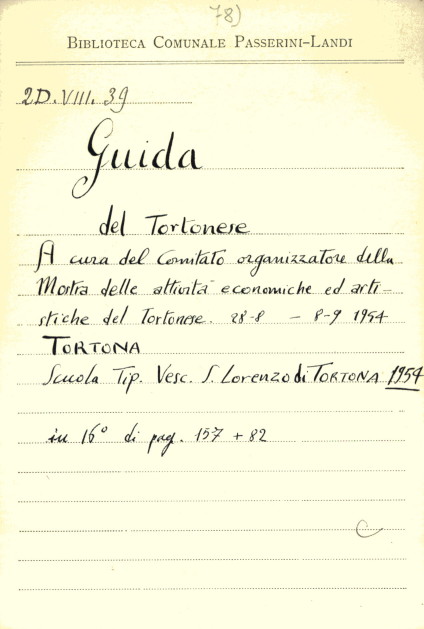 78)
BIBLIOTECA COMUNALE PASSERINI-LANDI
2D.VIII.39
Guida
del Tortonese
A cura del Comitato organizzatore della
Mostra delle attività economiche ed arti-
stiche del Tortonese. 28-8 - 8-9 1954
TORTONA
Scuola Tip. Vesc. S. Lorenzo di TORTONA 1954
in 16° di pag. 157 + 82
C